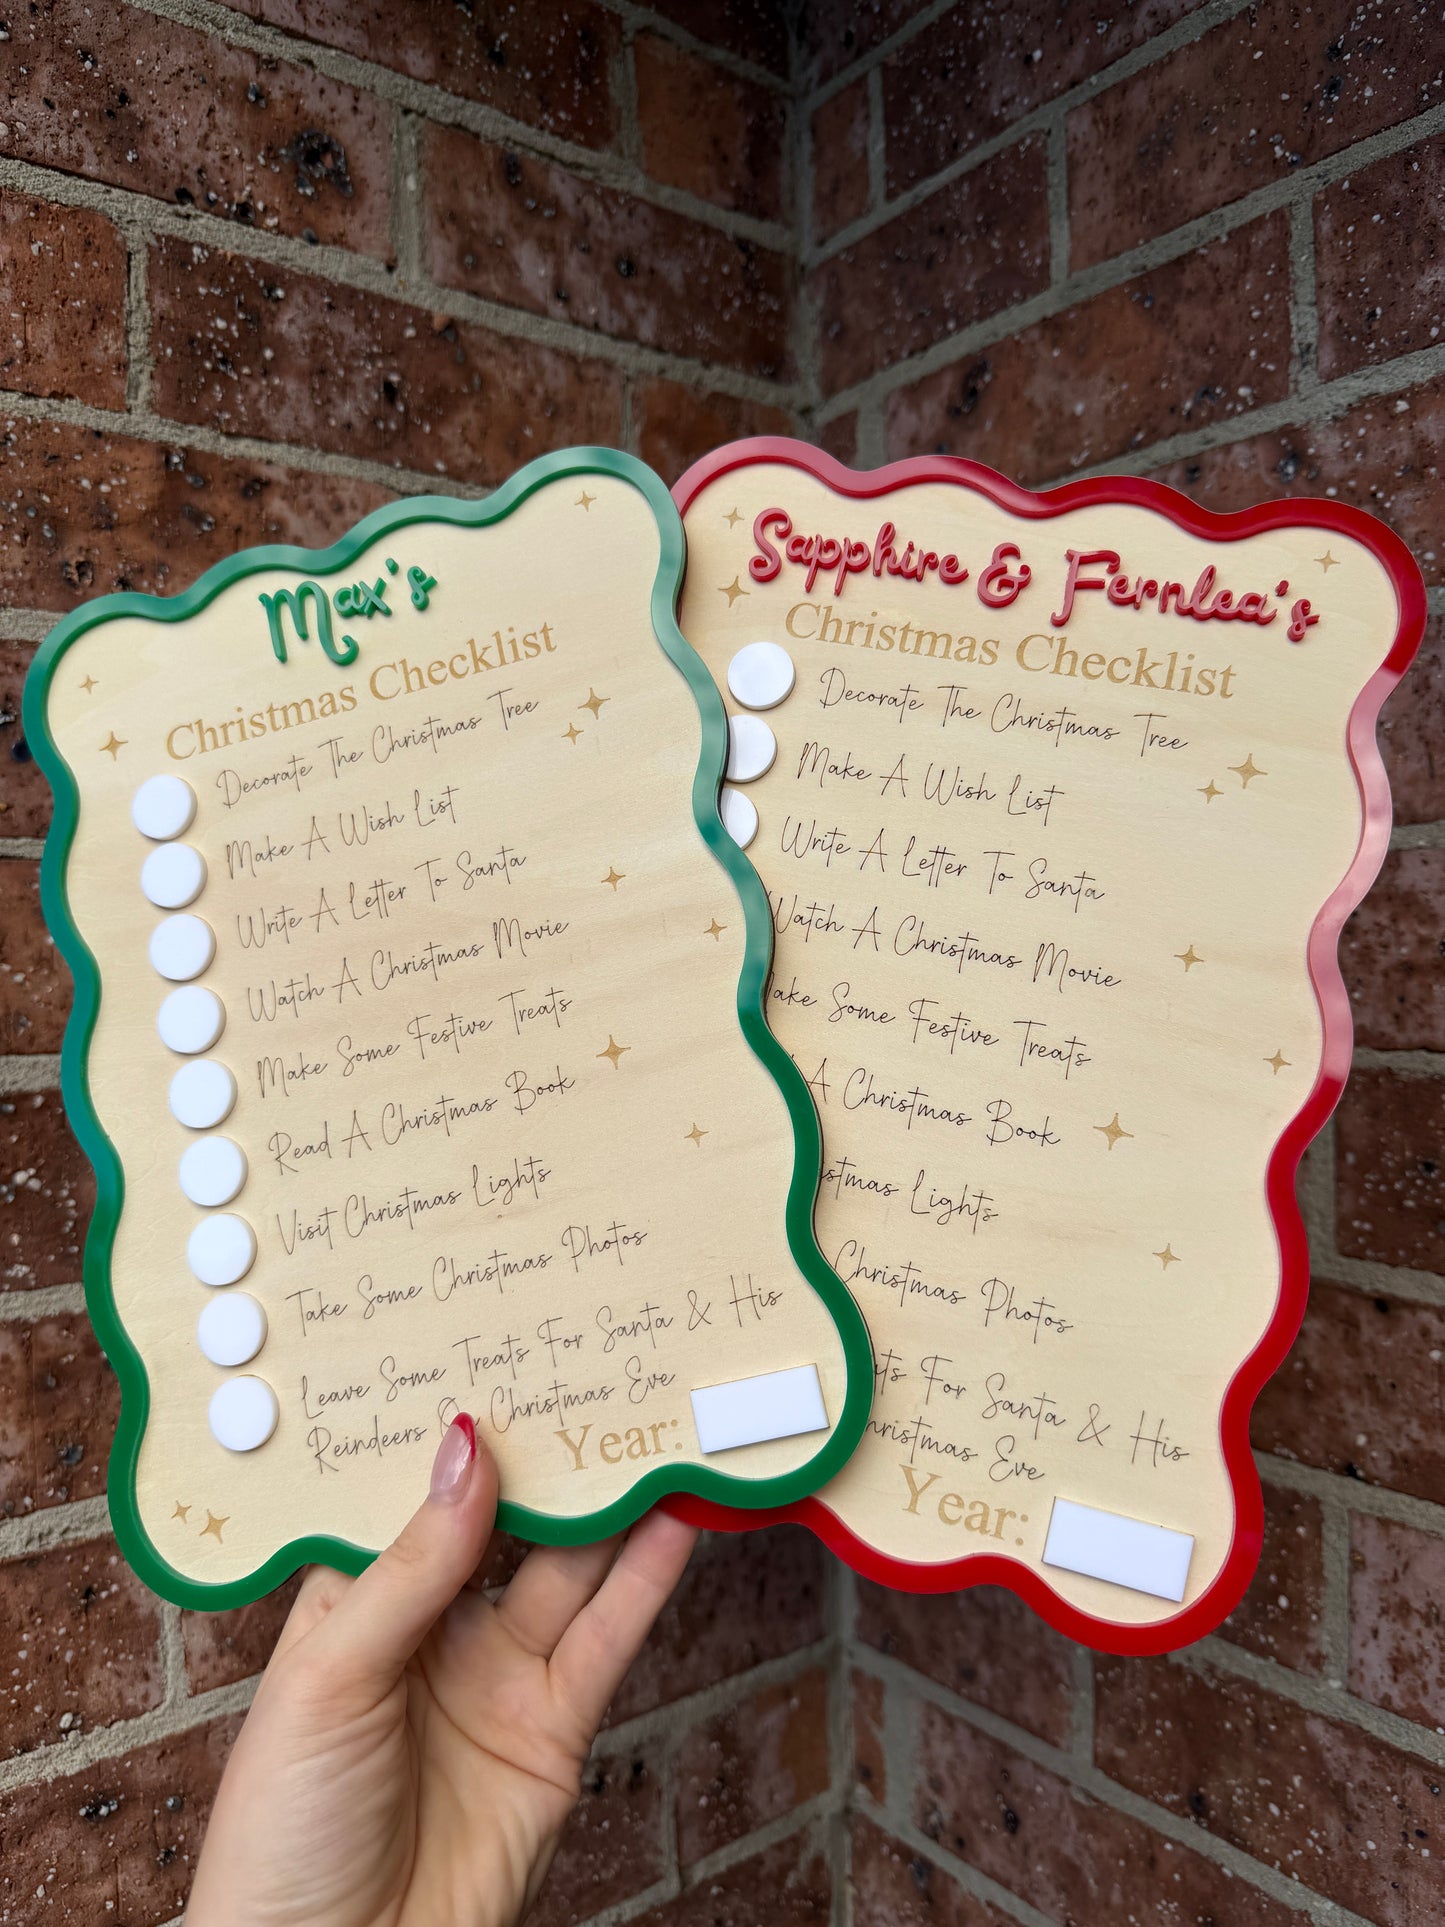 Max's
Christmas Checklist
Decorate The Christmas Tree
Make A Wish List
Write A Letter To Santa
Watch A Christmas Movie
Make Some Festive Treats
Read A Christmas Book
Visit Christmas Lights
Take Some Christmas Photos
Leave Some Treats For Santa & His
Reindeers Christmas Eve
Year:
Sapphire & Fernlea's
Christmas Checklist
Decorate The Christmas Tree
Make A Wish List
Write A Letter To Santa
Watch A Christmas Movie
Some Festive Treats
A Christmas Book
Lights
Christmas Photos
For Santa & His
Eve
Year: